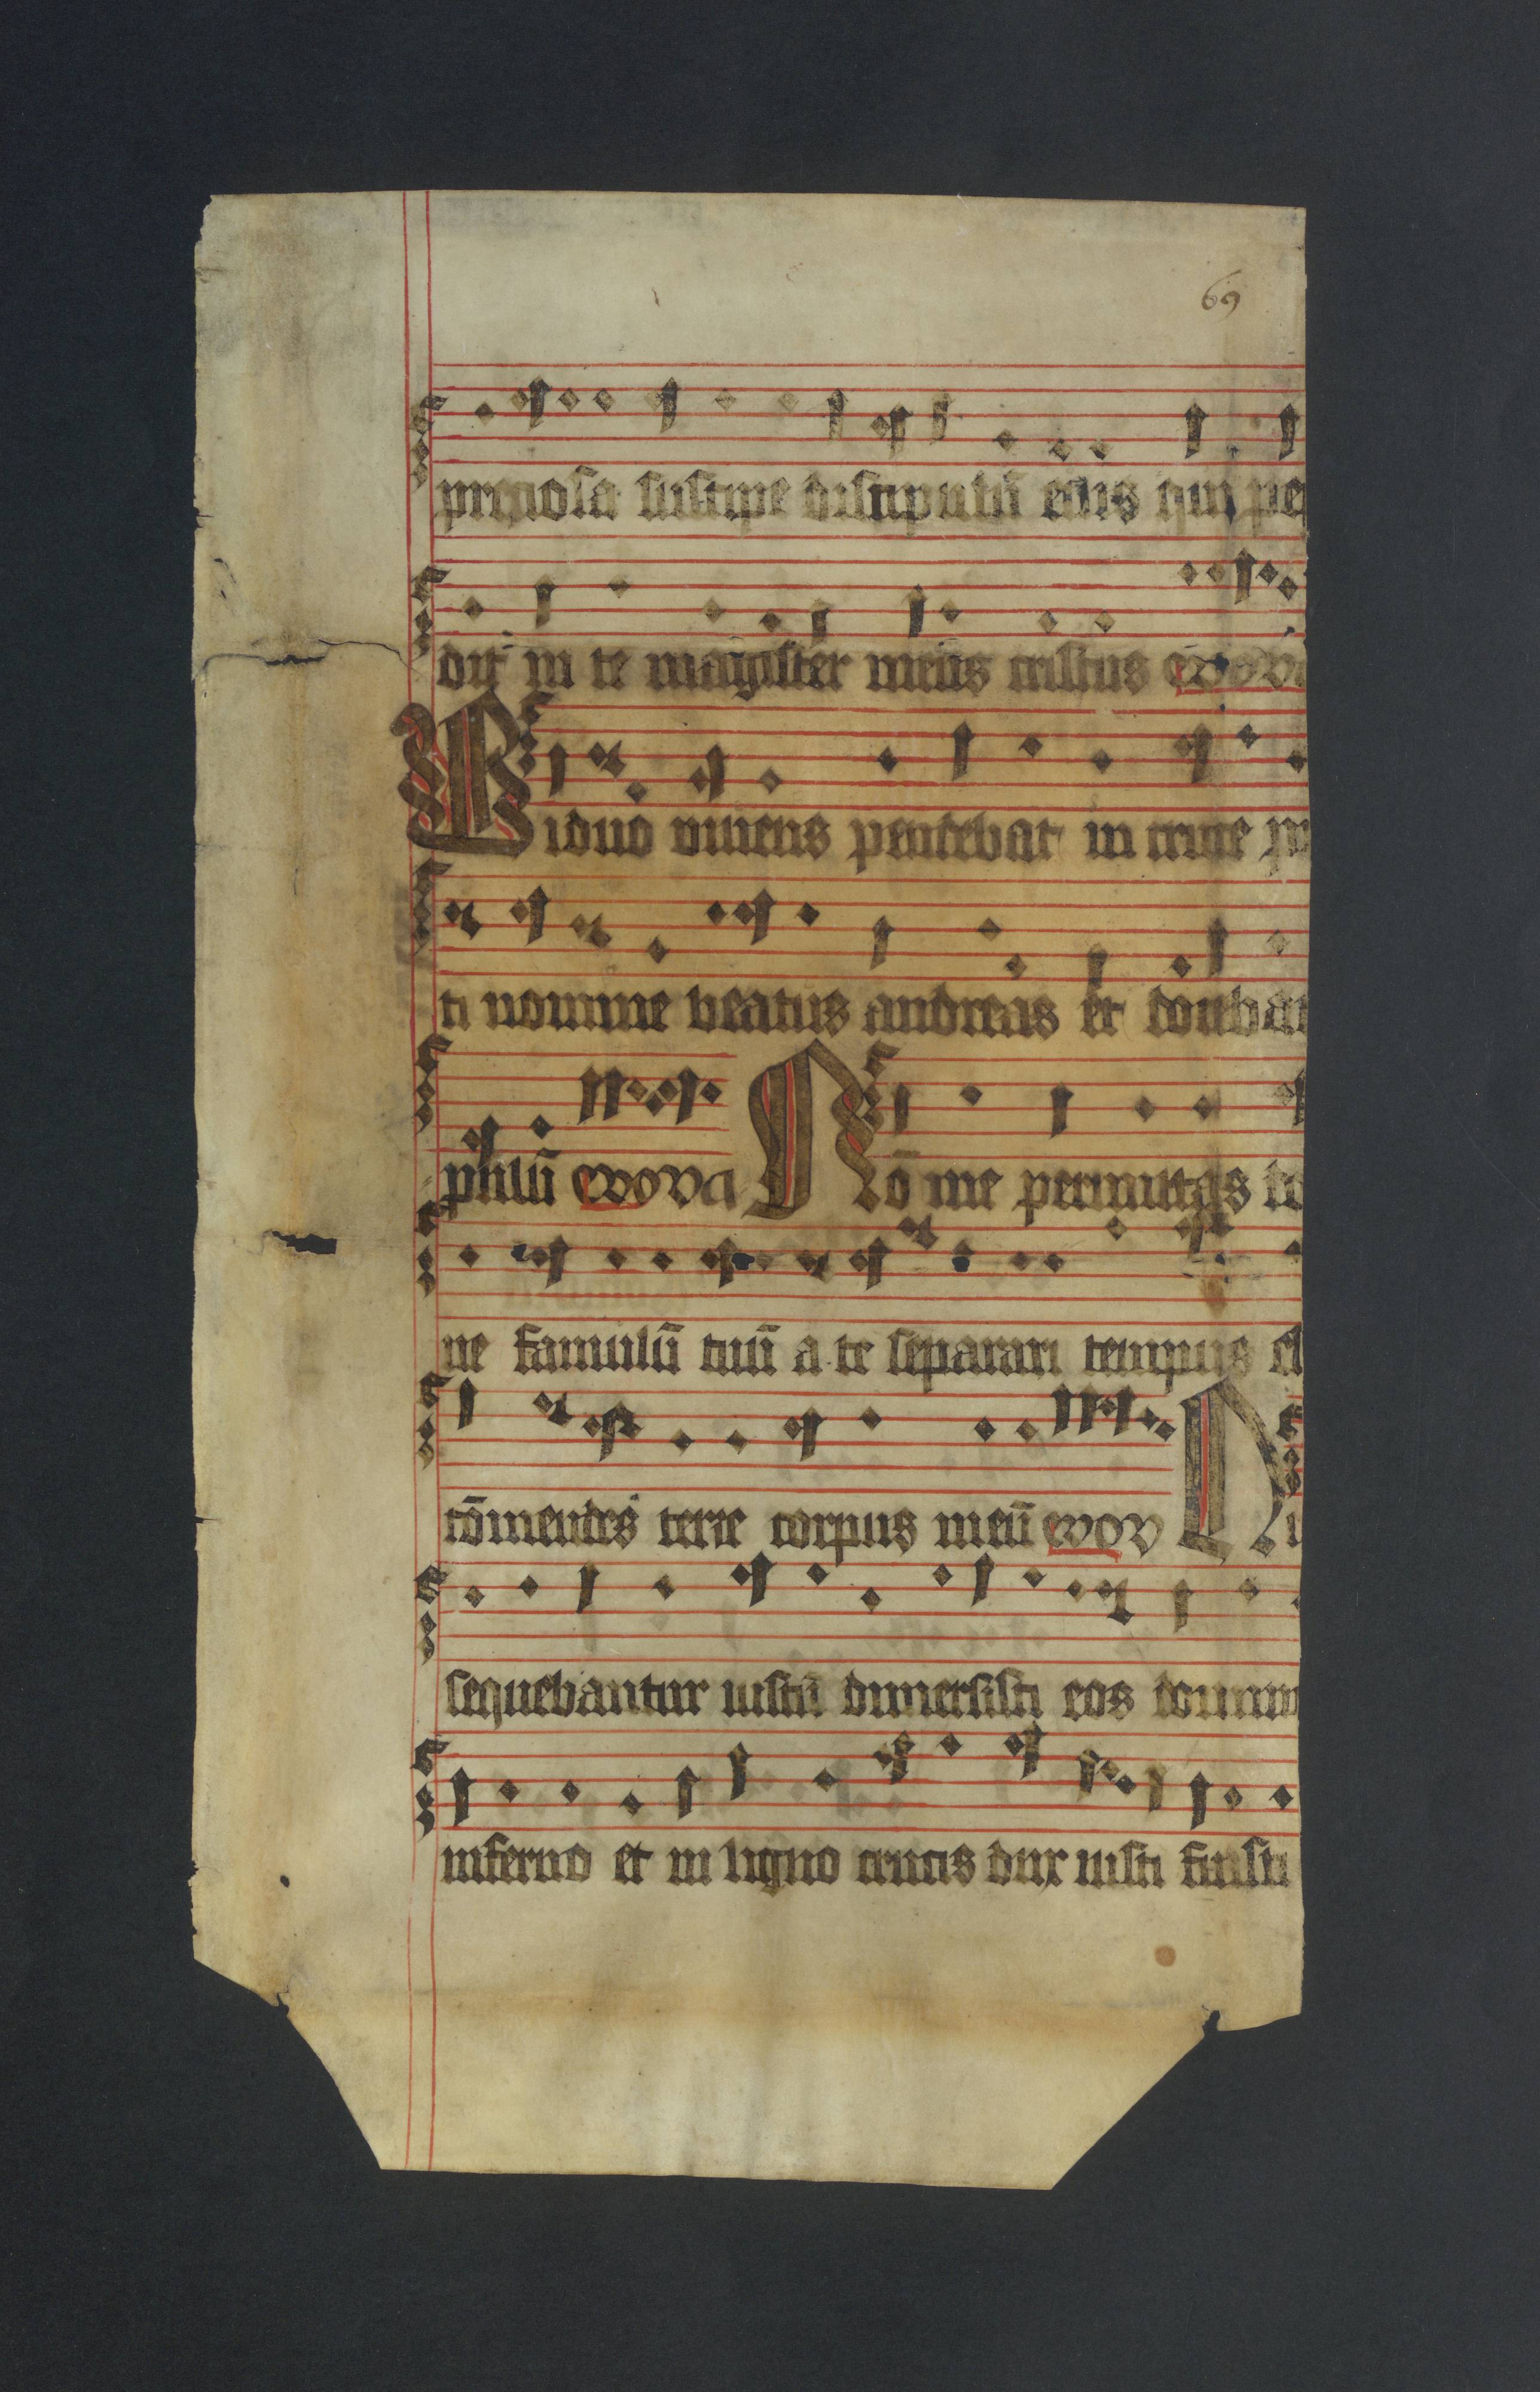 69
preciosa suscipe discipulū eius qui pe
dit in te magister meus cristus evova
Biduo viuens pendebat in cruce pro
ti nomine beatus andreas et doceba
ppulū evova Nō me permittas do
ne famulū tuū a te separari tempus est
cōmendes terre corpus meū evov Qui
sequebantur iustū dimersisti eos domine
inferno et in ligno crucis dux iusti fuisti